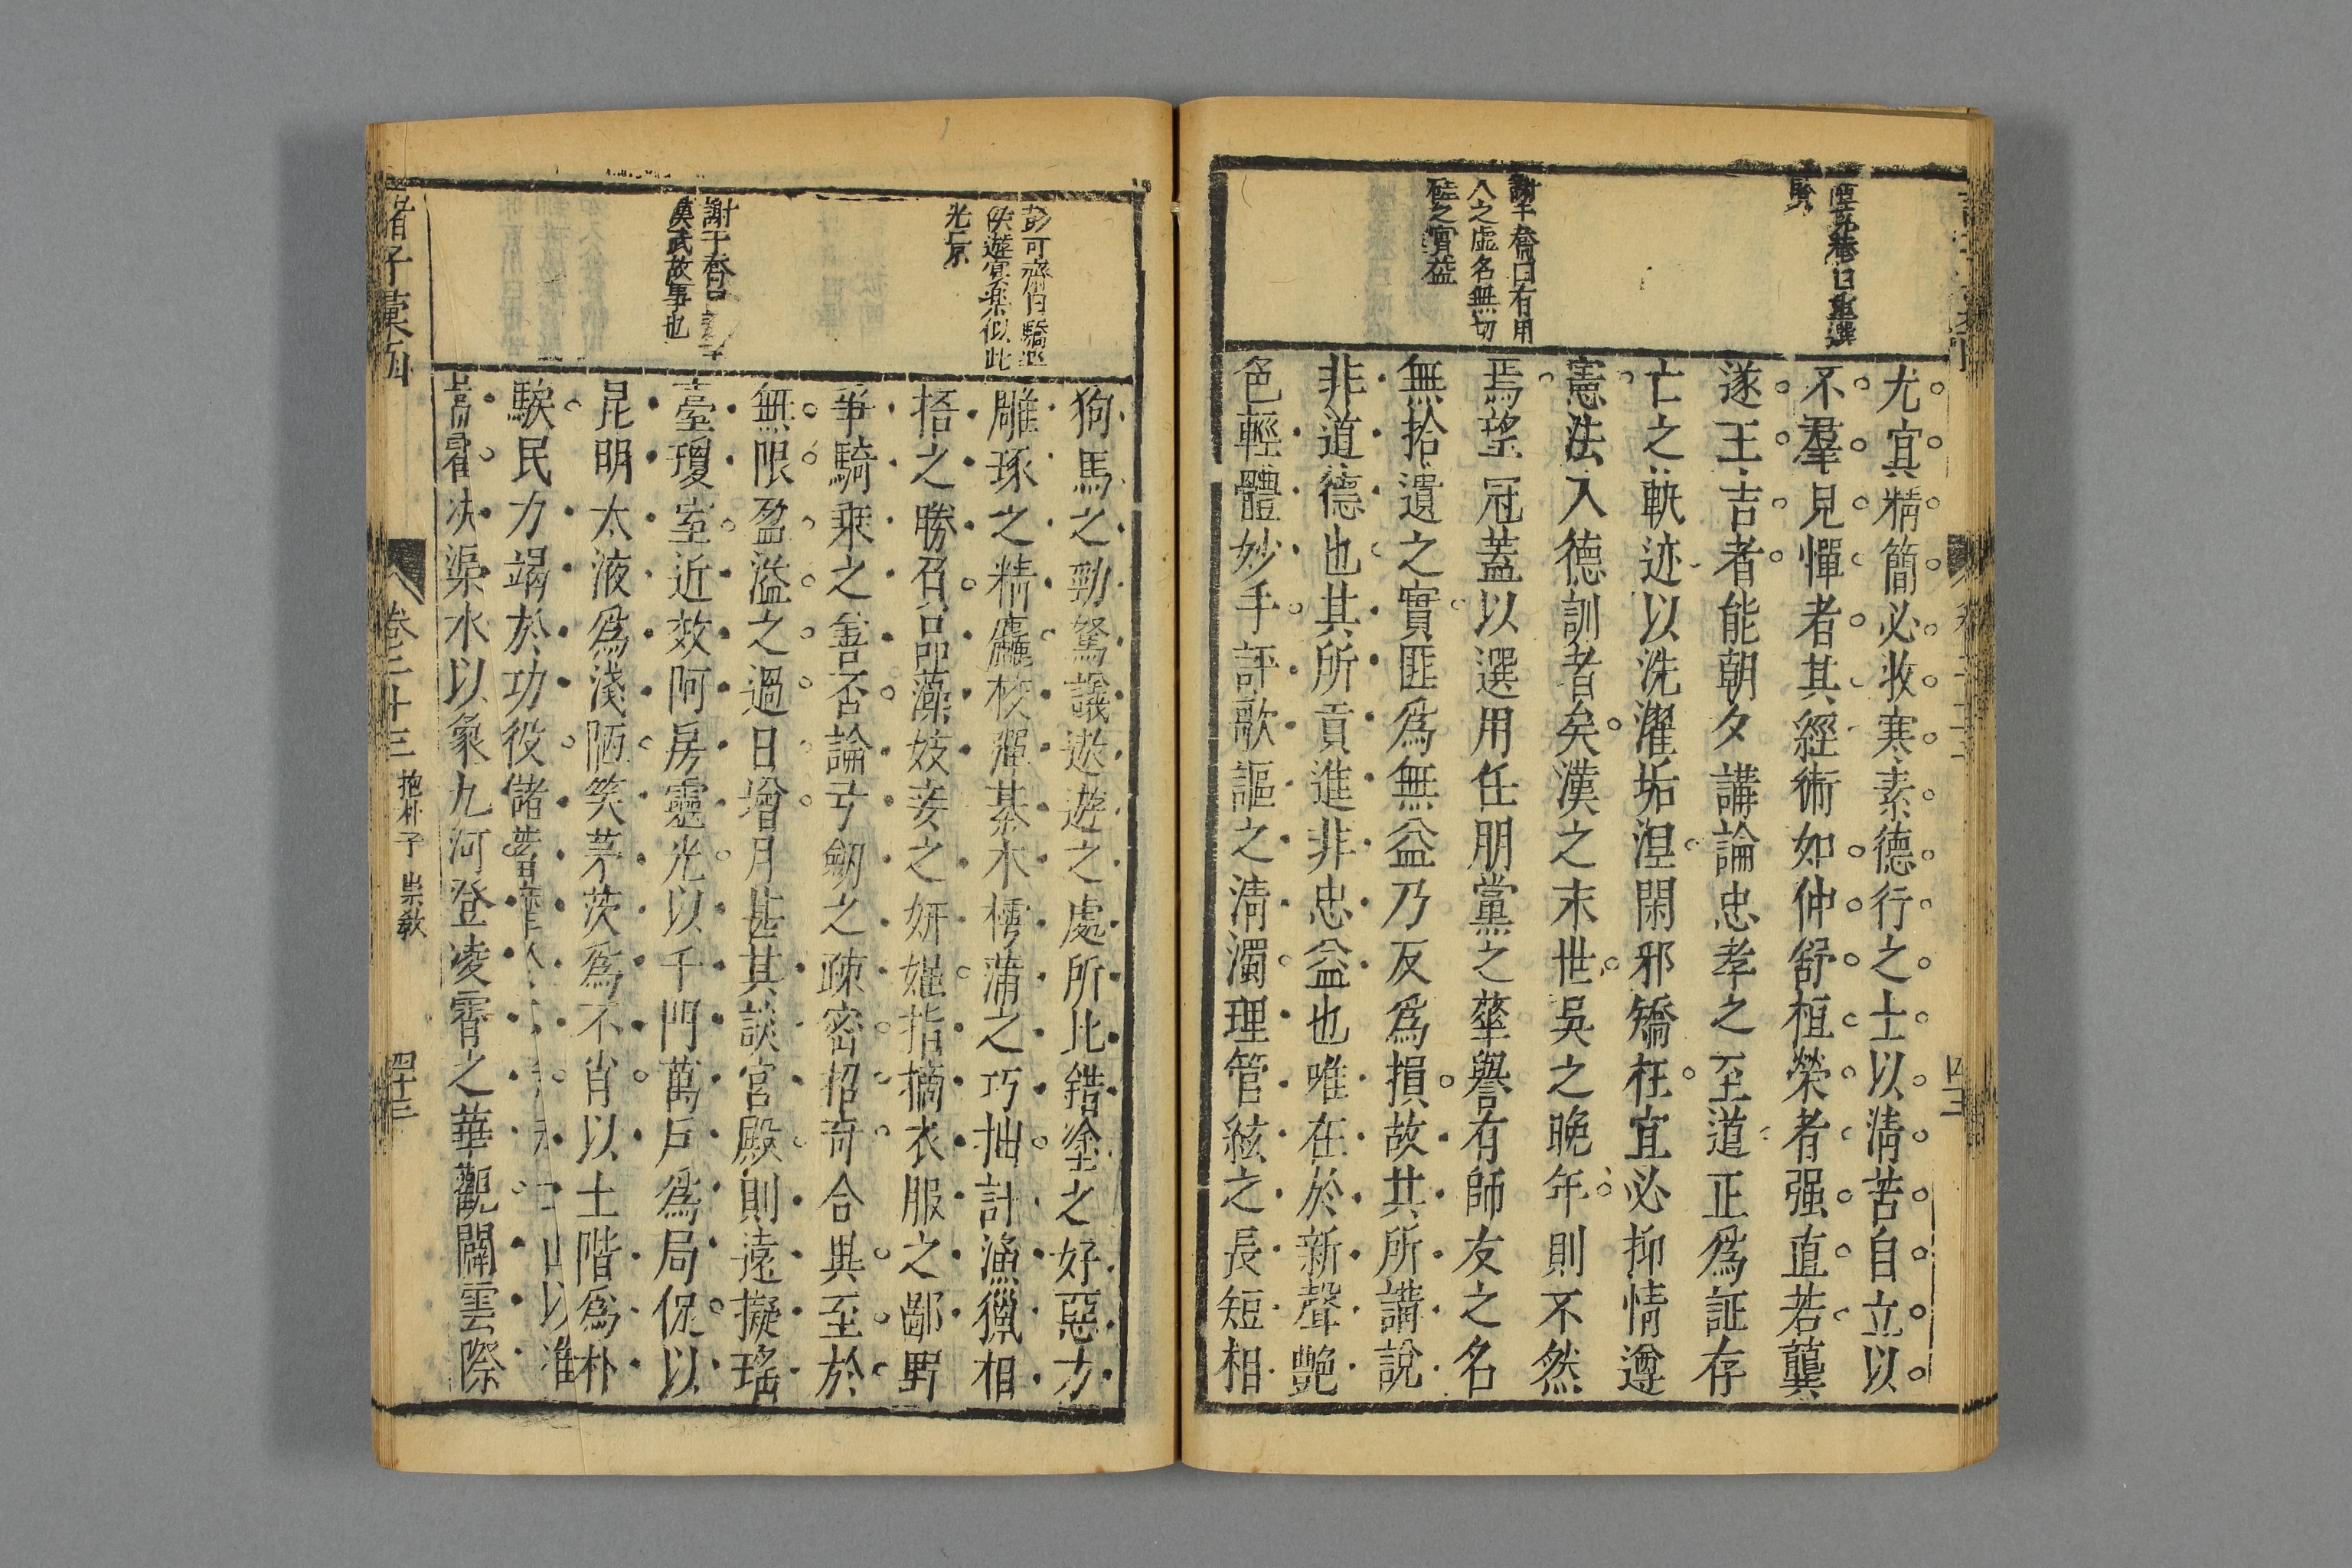 尤宜精簡必收寒素德行之士以清苦自立以
不羣見憚者其經術如仲舒桓榮者强直若龔
遂王吉者能朝夕講論忠孝之至道正爲証存
亡之軌迹以洗濯垢涅閑邪矯枉宜必抑情遵
憲法入德訓者矣漢之末世吳之晚年則不然
焉望冠蓋以選用任朋黨之華譽有師友之名
無拾遺之實匪爲無益乃反爲損故其所講說
非道德也其所貢進非忠益也唯在於新聲艷
色輕體妙手評歌謳之淸濁理管絃之長短相
謝子喬曰有用
人之虛名無切
磋之實益
狗馬之勁駑議遊遊之處所比錯塗之好惡方
雕琢之精麤校彈棊木樗蒲之巧拙計漁獵相
捂之勝召品藻妓妾之妍媸指摘衣服之鄙野
爭騎乘之善否論弓劒之疎密招奇合異至於
無限盈溢之過日增月甚其談宮殿則遠擬瑤
臺瓊室近效阿房靈光以千門萬戶爲局促以
昆明太液爲淺陋笑茅茨爲不肖以土階爲朴
騃民力竭於功役儲蓄
山以准
嵩霍决渠水以象九河登凌霄之華觀闢雲際
彭可齋曰驕淫
佚遊宴樂似此
光景
謝子喬曰
漢武故事也
諸子彙函
卷三十三
抱朴子 崇敎
四十三